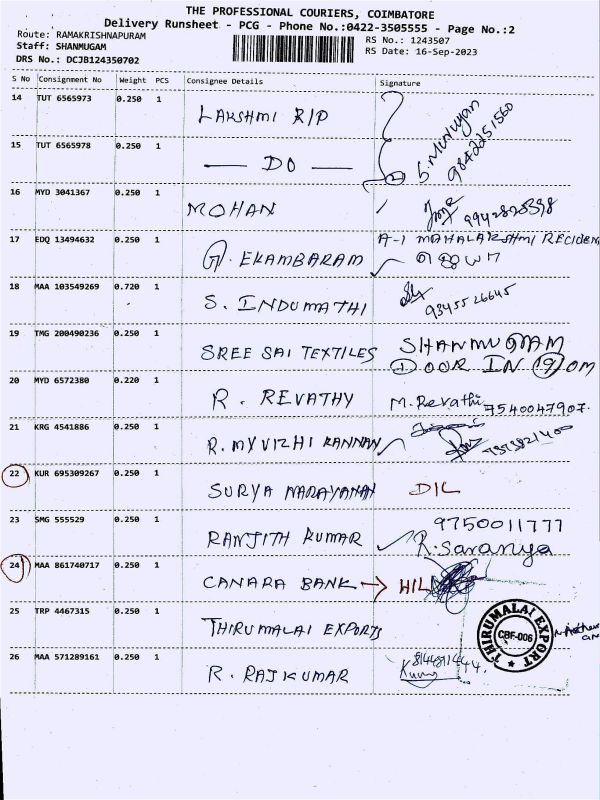 THE PROFESSIONAL COURIERS, COIMBATORE
Delivery Runsheet - PCG - Phone No.:0422-3505555 - Page No.:2
Route: RAMAKRISHNAPURAM
RS No.: 1243507
Staff: SHANMUGAM
RS Date: 16-Sep-2023
DRS No.: DCJB124350702
S No Consignment No Weight PCS Consignee Details Signature
14 TUT 6565973 0.250 1 LAKSHMI R/P
15 TUT 6565978 0.250 1 — DO — 2 S. Murugan 9842251560
16 MYD 3041367 0.250 1 MOHAN
17 EDQ 13494632 0.250 1 G. EKAMBARAM A-1 MAHALAKSHMI RECIDEN
18 MAA 103549269 0.720 1 S. INDUMATHI 9345526645
19 TMG 200490236 0.250 1 SREE SAI TEXTILES SHANMUGAM
1 DOOR IN 19/0M
20 MYD 6572380 0.220 1 R. REVATHY M.Revathi 7540047907.
21 KRG 4541886 0.250 1 R. MYVIZHI KANNAN
22 KUR 695309267 0.250 1 SURYA NARAYANAN DIL
23 SMG 555529 0.250 1 RANJITH KUMAR 9750011777
R. Saranya
24 MAA 861740717 0.250 1 CANARA BANK → HIL
25 TRP 4467315 0.250 1 THIRUMALAI EXPORTS THIRUMALAI EXPORT CBE-006
26 MAA 571289161 0.250 1 R. RAJKUMAR 8144811444.